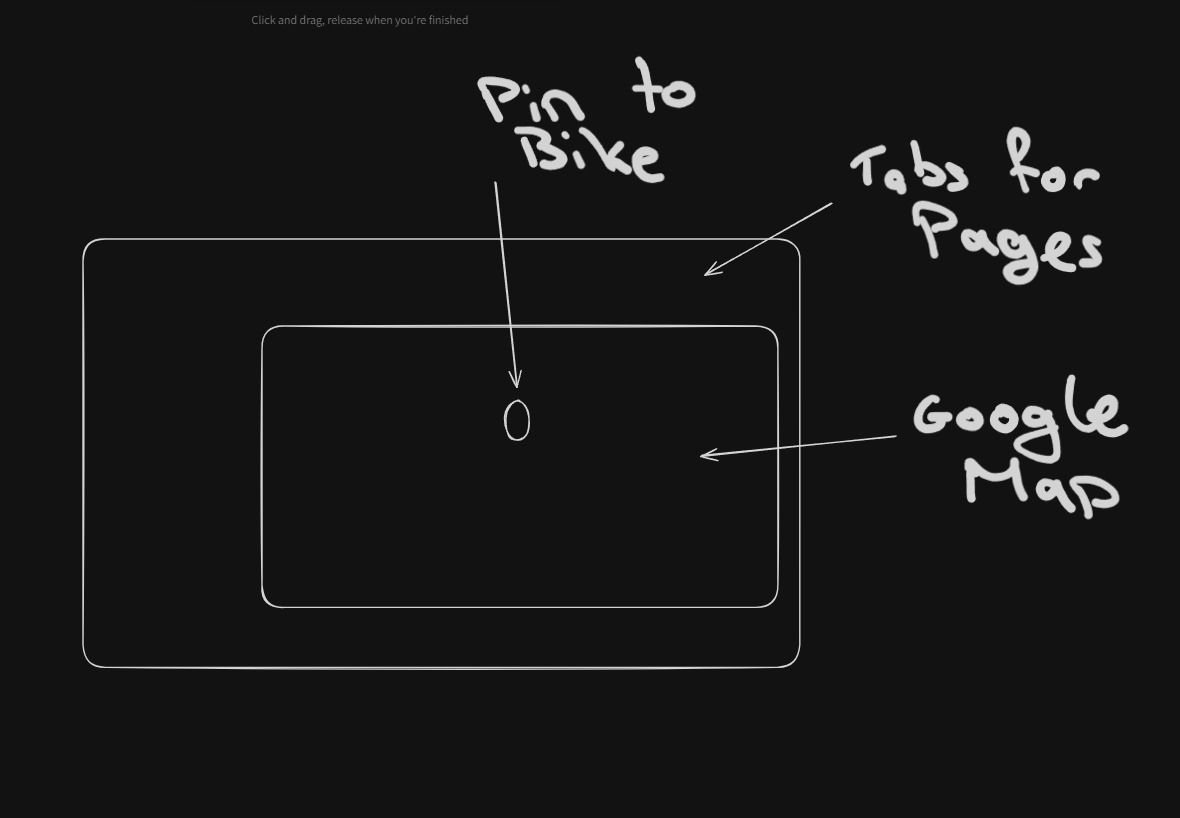 Click and drag, release when you're finished
Pin to
Bike
Tabs for
Pages
Google
Map